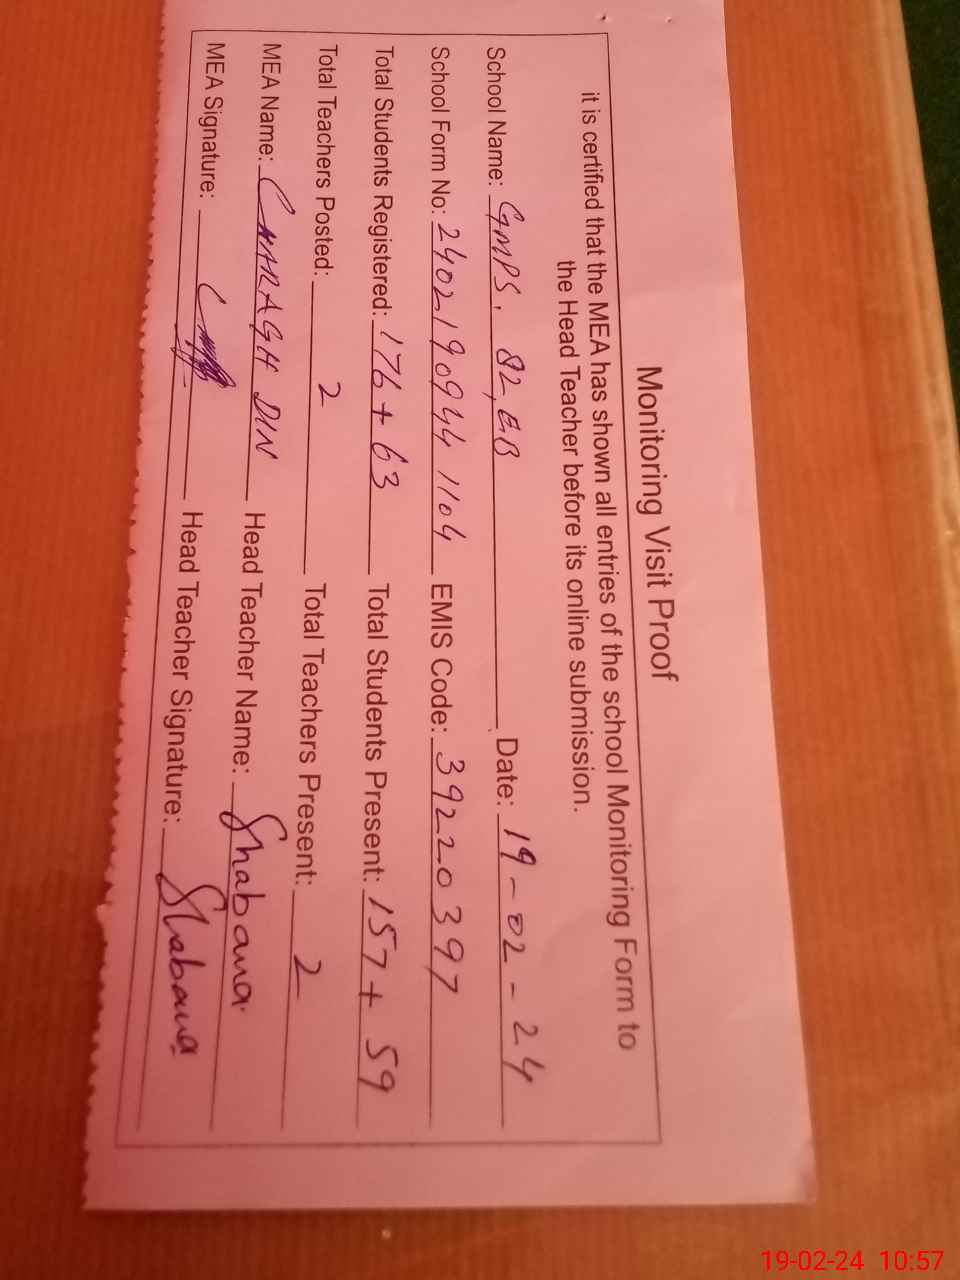 Monitoring Visit Proof
it is certified that the MEA has shown all entries of the school Monitoring Form to
the Head Teacher before its online submission.
School Name: GMPS, 82, EB Date: 19-02-24
School Form No: 2402190944 1104 EMIS Code: 39220397
Total Students Registered: 176 + 63 Total Students Present: 157 + 59
Total Teachers Posted: 2 Total Teachers Present: 2
MEA Name: CHARAGH DIN Head Teacher Name: Shabana.
MEA Signature: Head Teacher Signature: Shabana
19-02-24 10:57